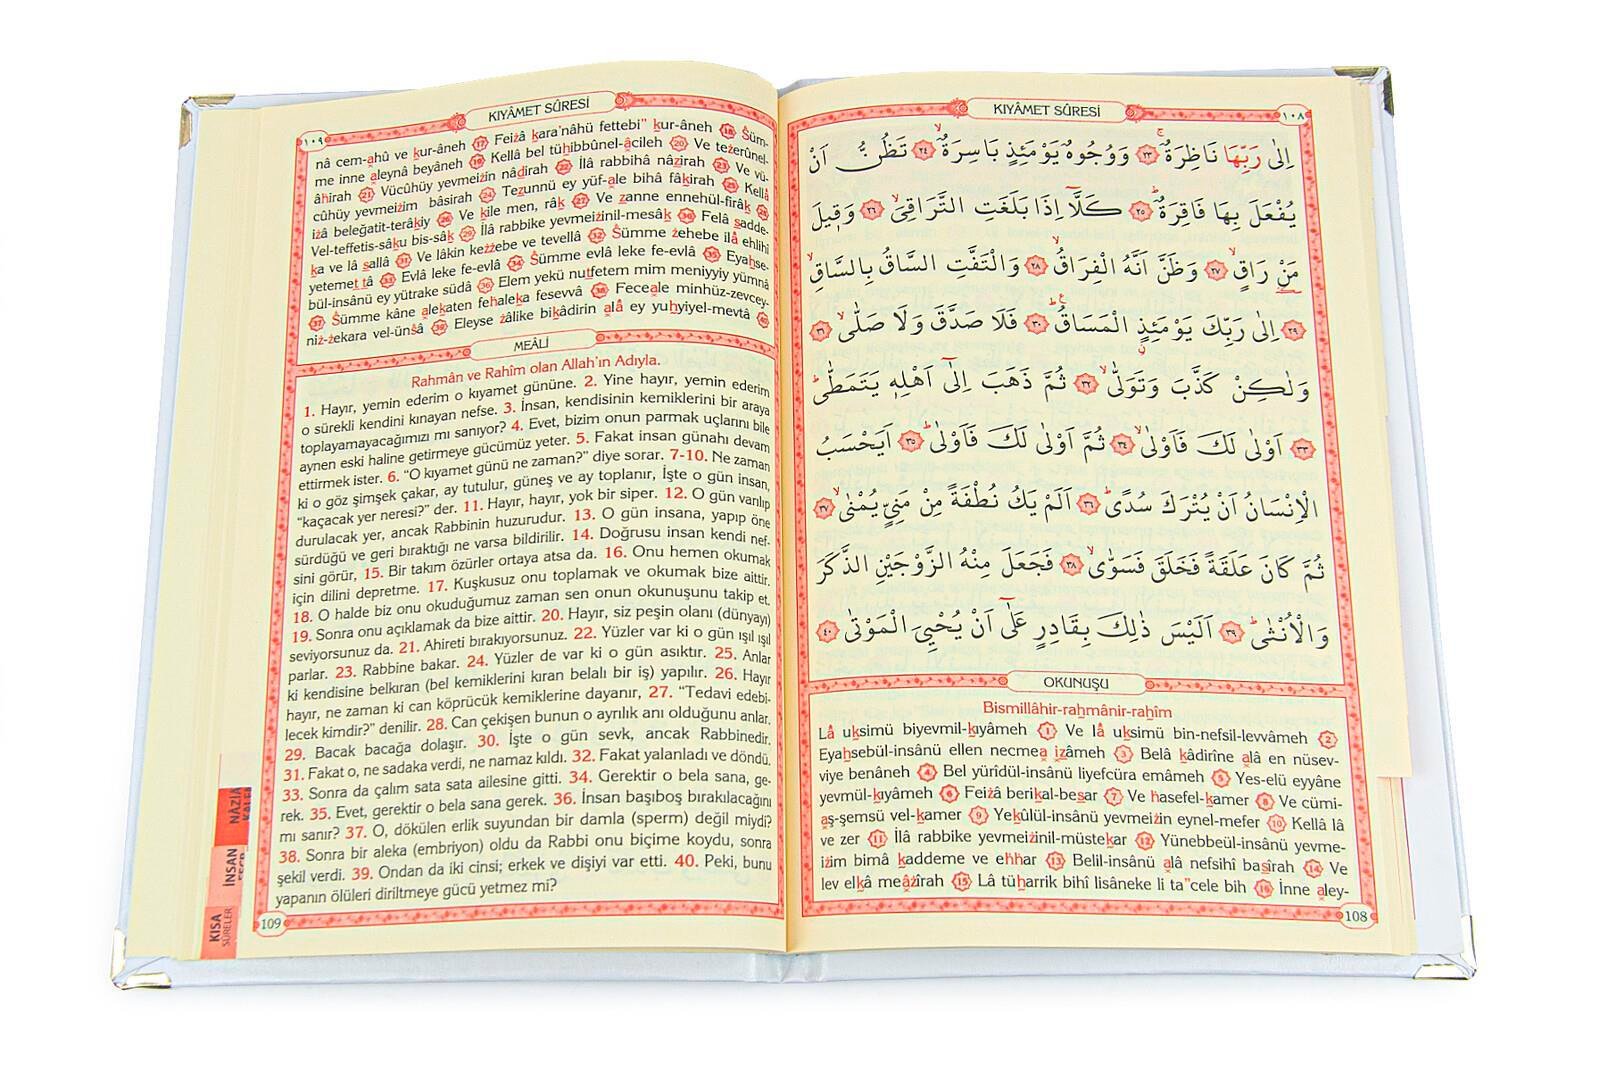 KIYÂMET SÛRESİ
١٠٨
اِلٰى رَبِّهَا نَاظِرَةٌۚ ﴿٢٣﴾ وَوُجُوهٌ يَوْمَئِذٍ بَاسِرَةٌۙ ﴿٢٤﴾ تَظُنُّ اَنْ
يُفْعَلَ بِهَا فَاقِرَةٌۜ ﴿٢٥﴾ كَلَّٓا اِذَا بَلَغَتِ التَّرَاقِيَۙ ﴿٢٦﴾ وَقٖيلَ
مَنْ رَاقٍۙ ﴿٢٧﴾ وَظَنَّ اَنَّهُ الْفِرَاقُۙ ﴿٢٨﴾ وَالْتَفَّتِ السَّاقُ بِالسَّاقِۙ
﴿٢٩﴾ اِلٰى رَبِّكَ يَوْمَئِذٍ الْمَسَاقُۜ ﴿٣٠﴾ فَلَا صَدَّقَ وَلَا صَلّٰىۙ ﴿٣١﴾
وَلٰكِنْ كَذَّبَ وَتَوَلّٰىۙ ﴿٣٢﴾ ثُمَّ ذَهَبَ اِلٰٓى اَهْلِهٖ يَتَمَطّٰىۜ
﴿٣٣﴾ اَوْلٰى لَكَ فَاَوْلٰىۙ ﴿٣٤﴾ ثُمَّ اَوْلٰى لَكَ فَاَوْلٰىۜ ﴿٣٥﴾ اَيَحْسَبُ
الْاِنْسَانُ اَنْ يُتْرَكَ سُدًىۜ ﴿٣٦﴾ اَلَمْ يَكُ نُطْفَةً مِنْ مَنِيٍّ يُمْنٰىۙ ﴿٣٧﴾
ثُمَّ كَانَ عَلَقَةً فَخَلَقَ فَسَوّٰىۙ ﴿٣٨﴾ فَجَعَلَ مِنْهُ الزَّوْجَيْنِ الذَّكَرَ
وَالْاُنْثٰىۜ ﴿٣٩﴾ اَلَيْسَ ذٰلِكَ بِقَادِرٍ عَلٰٓى اَنْ يُحْيِيَ الْمَوْتٰى ﴿٤٠﴾
OKUNUŞU
Bismillâhir-rahmânir-rahîm
Lâ uksimü biyevmil-kıyâmeh 1 Ve lâ uksimü bin-nefsil-levvâmeh 2
Eyahsebül-insânü ellen necmea izâmeh 3 Belâ kâdirîne alâ en nüsev-
viye benâneh 4 Bel yürîdül-insânü liyefcüra emâmeh 5 Yes-elü eyyâne
yevmül-kıyâmeh 6 Feiżâ berikal-besar 7 Ve hasefel-kamer 8 Ve cümi-
aş-şemsü vel-kamer 9 Yekûlül-insânü yevmeiżin eynel-mefer 10 Kellâ lâ
ve zer 11 İlâ rabbike yevmeiżinil-müstekar 12 Yünebbeül-insânü yevme-
iżim bimâ kaddeme ve ehhar 13 Belil-insânü alâ nefsihî basîrah 14 Ve
lev elkâ meâżîrah 15 Lâ tüharrik bihî lisâneke li ta"cele bih 16 İnne aley-
108
KIYÂMET SÛRESİ
١٠٩
nâ cem-ahû ve kur-âneh 17 Feiżâ kara'nâhü fettebi" kur-âneh 18 Śüm-
me inne aleynâ beyâneh 19 Kellâ bel tühibbûnel-âcileh 20 Ve teżerûnel-
âhirah 21 Vücûhüy yevmeiżin nâdirah 22 İlâ rabbihâ nâzirah 23 Ve vü-
cûhüy yevmeiżim bâsirah 24 Tezunnü ey yüf-ale bihâ fâkirah 25 Kellâ
iżâ beleğatit-terâkıy 26 Ve kîle men, râk 27 Ve zanne ennehül-firâk 28
Vel-teffetis-sâku bis-sâk 29 İlâ rabbike yevmeiżinil-mesâk 30 Felâ sadde-
ka ve lâ sallâ 31 Ve lâkin keżżebe ve tevellâ 32 Śümme żehebe ilâ ehlihî
yetemettâ 33 Evlâ leke fe-evlâ 34 Śümme evlâ leke fe-evlâ 35 Eyahse-
bül-insânü ey yütrake südâ 36 Elem yekü nutfetem mim meniyyiy yümnâ
37 Śümme kâne alekaten fehaleka fesevvâ 38 Feceale minhüz-zevcey-
niż-żekara vel-ünśâ 39 Eleyse żâlike bikâdirin alâ ey yuhyiyel-mevtâ 40
MEÂLİ
Rahmân ve Rahîm olan Allah'ın Adıyla.
1. Hayır, yemin ederim o kıyamet gününe. 2. Yine hayır, yemin ederim
o sürekli kendini kınayan nefse. 3. İnsan, kendisinin kemiklerini bir araya
toplayamayacağımızı mı sanıyor? 4. Evet, bizim onun parmak uçlarını bile
aynen eski haline getirmeye gücümüz yeter. 5. Fakat insan günahı devam
ettirmek ister. 6. "O kıyamet günü ne zaman?" diye sorar. 7-10. Ne zaman
ki o göz şimşek çakar, ay tutulur, güneş ve ay toplanır, İşte o gün insan,
"kaçacak yer neresi?" der. 11. Hayır, hayır, yok bir siper. 12. O gün varılıp
durulacak yer, ancak Rabbinin huzurudur. 13. O gün insana, yapıp öne
sürdüğü ve geri bıraktığı ne varsa bildirilir. 14. Doğrusu insan kendi nef-
sini görür, 15. Bir takım özürler ortaya atsa da. 16. Onu hemen okumak
için dilini depretme. 17. Kuşkusuz onu toplamak ve okumak bize aittir.
18. O halde biz onu okuduğumuz zaman sen onun okunuşunu takip et.
19. Sonra onu açıklamak da bize aittir. 20. Hayır, siz peşin olanı (dünyayı)
seviyorsunuz da. 21. Ahireti bırakıyorsunuz. 22. Yüzler var ki o gün ışıl ışıl
parlar. 23. Rabbine bakar. 24. Yüzler de var ki o gün asıktır. 25. Anlar
ki kendisine belkıran (bel kemiklerini kıran belalı bir iş) yapılır. 26. Hayır
hayır, ne zaman ki can köprücük kemiklerine dayanır, 27. "Tedavi edebi-
lecek kimdir?" denilir. 28. Can çekişen bunun o ayrılık anı olduğunu anlar.
29. Bacak bacağa dolaşır. 30. İşte o gün sevk, ancak Rabbinedir.
31. Fakat o, ne sadaka verdi, ne namaz kıldı. 32. Fakat yalanladı ve döndü.
33. Sonra da çalım sata sata ailesine gitti. 34. Gerektir o bela sana, ge-
rek. 35. Evet, gerektir o bela sana gerek. 36. İnsan başıboş bırakılacağını
mı sanır? 37. O, dökülen erlik suyundan bir damla (sperm) değil miydi?
38. Sonra bir aleka (embriyon) oldu da Rabbi onu biçime koydu, sonra
şekil verdi. 39. Ondan da iki cinsi; erkek ve dişiyi var etti. 40. Peki, bunu
yapanın ölüleri diriltmeye gücü yetmez mi?
109
İNSAN
KISA
SÛRELER